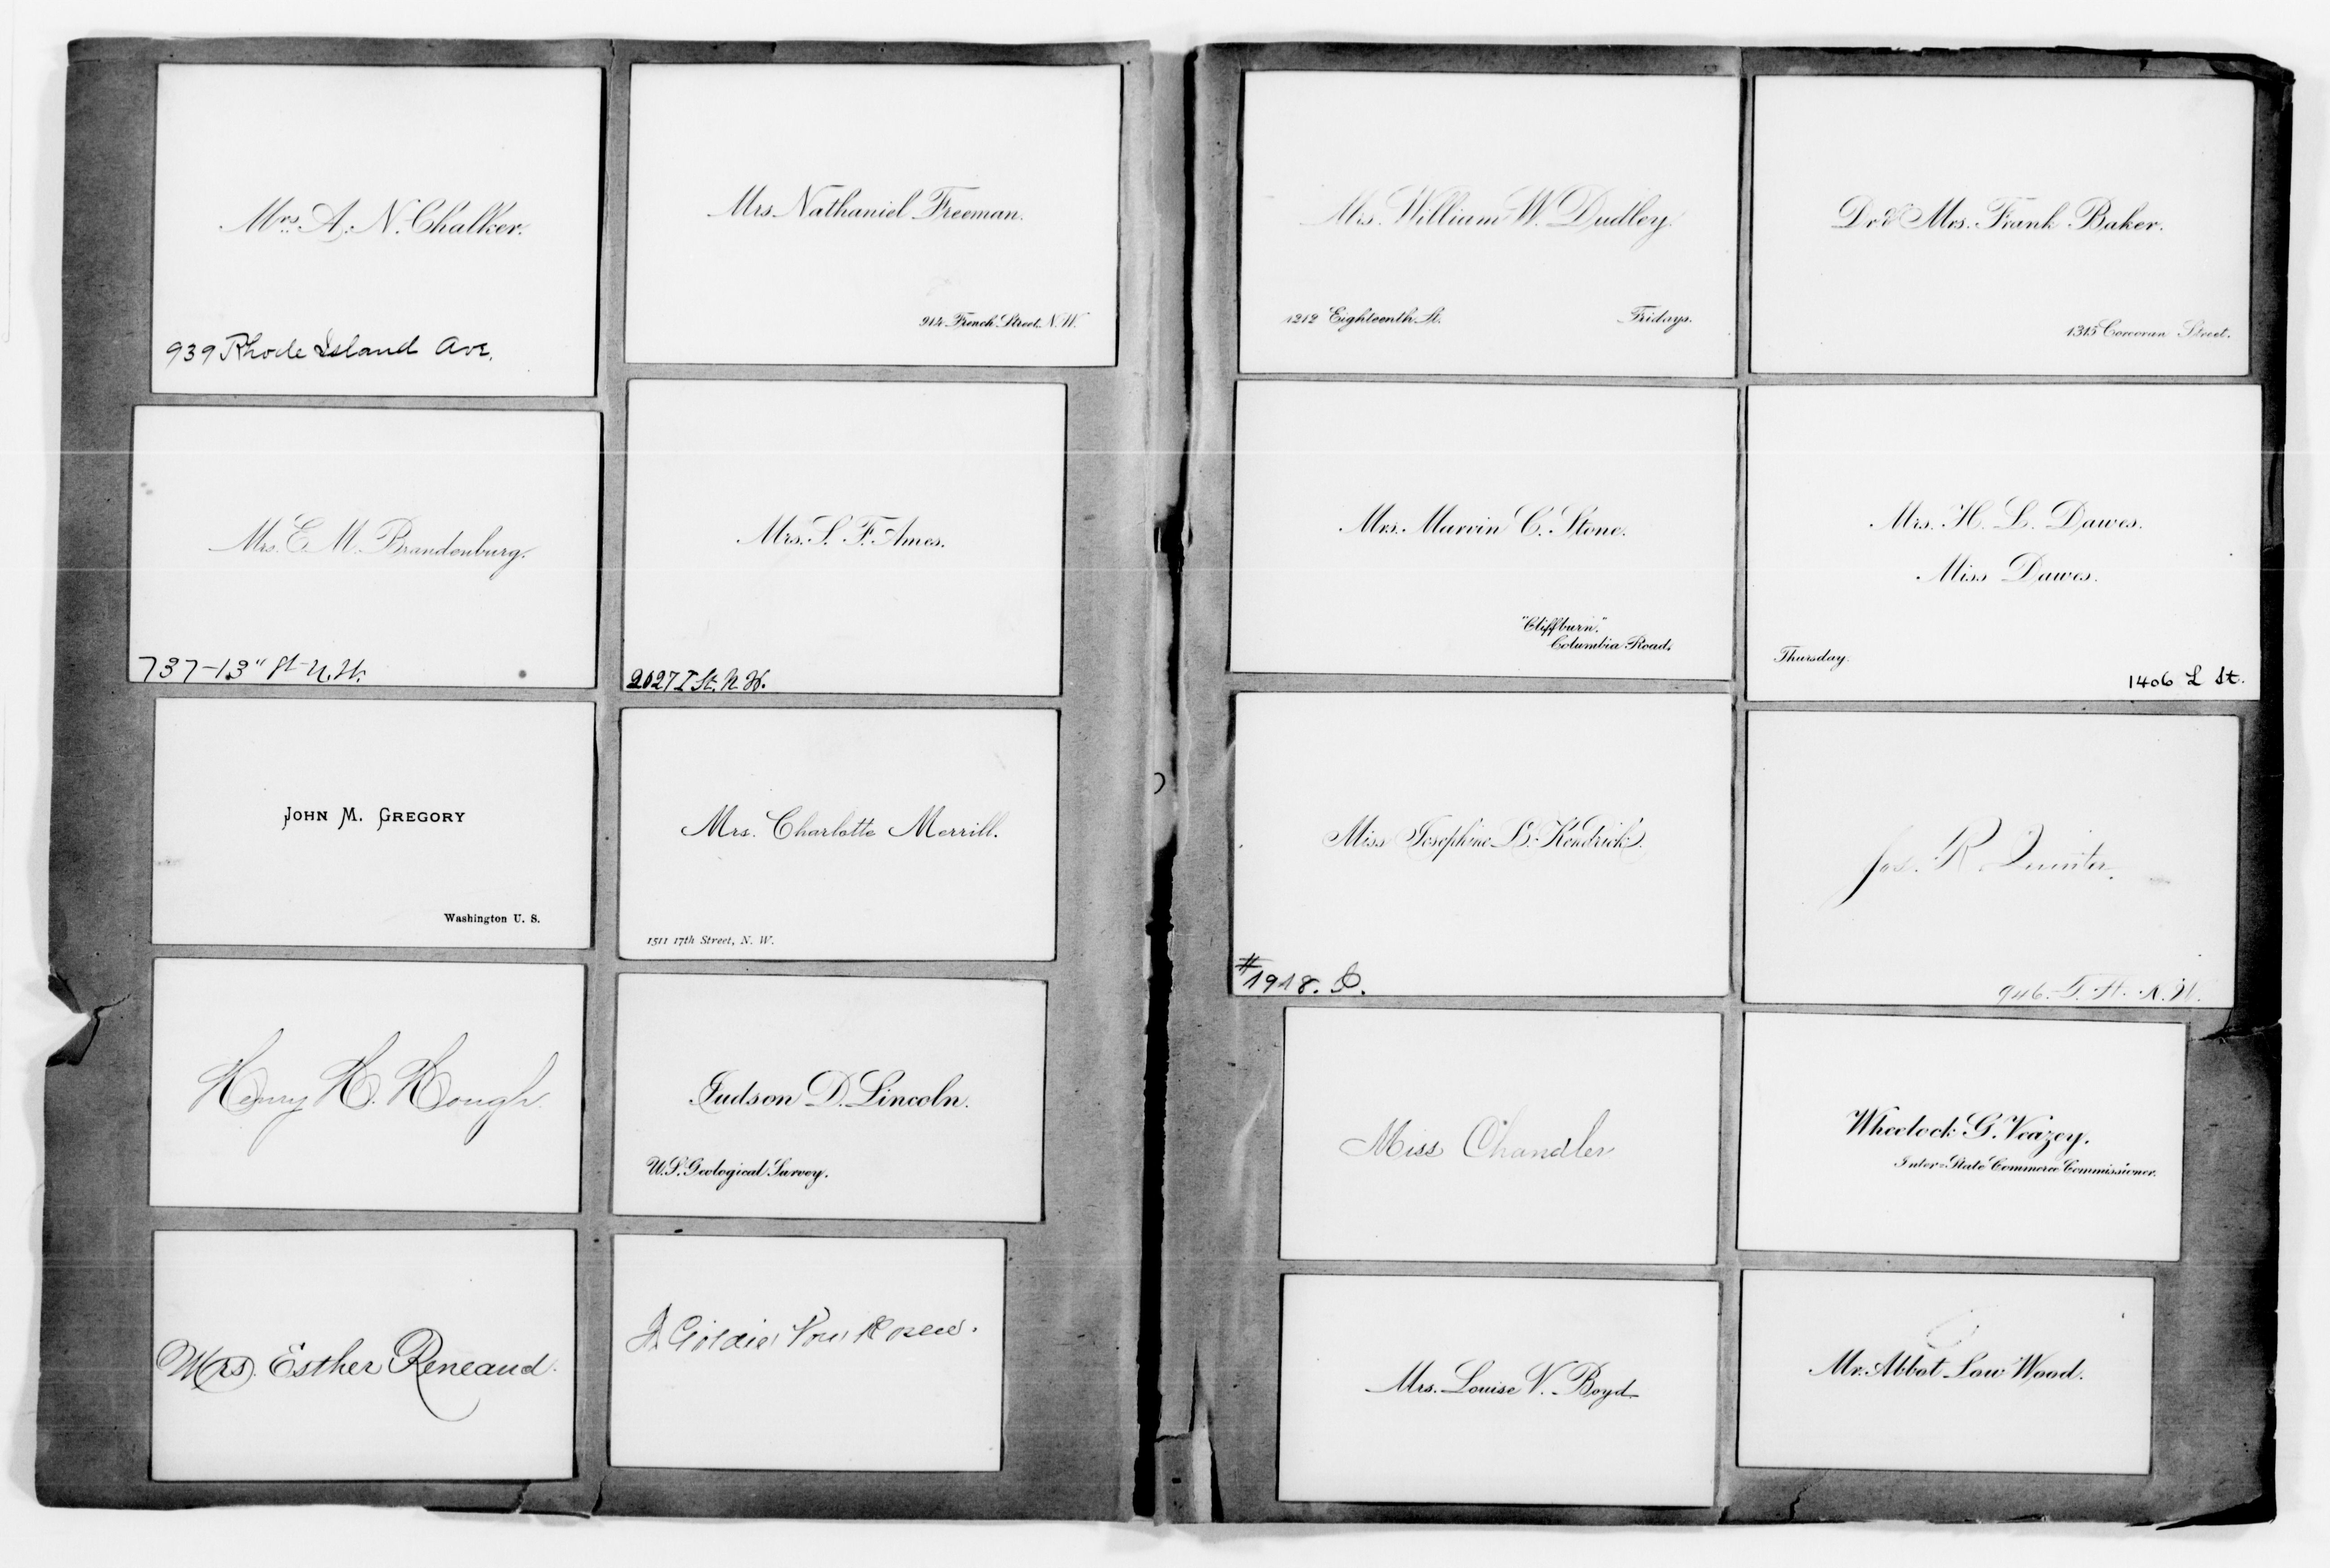 Mrs. A. N. Chalker.
939 Rhode Island Ave.
Mrs. Nathaniel Freeman.
914 French Street. N. W.
Mrs. E. M. Brandenburg.
737-13" St N. W.
Mrs. S. F. Ames.
2027 I St. N. W.
JOHN M. GREGORY
Washington U. S.
Mrs. Charlotte Merrill.
1511 17th Street, N. W.
Henry H. Hough.
Judson D. Lincoln.
U. S. Geological Survey.
Mrs. Esther Reneaud.
Goldie
Mrs. William W. Dudley.
1212 Eighteenth St.
Fridays.
Dr & Mrs. Frank Baker.
1315 Corcoran Street.
Mrs. Marvin C. Stone.
"Cliffburn."
Columbia Road.
Mrs. H. L. Dawes.
Miss Dawes.
Thursday.
1406 L St.
Miss Josephine B. Kendrick.
#1918.
Jos. R. Quinter.
946. T. St. N. W.
Miss Chandler
Wheelock G. Veazey.
Inter-State Commerce Commissioner.
Mrs. Louise V. Boyd
Mr. Abbot Low Wood.